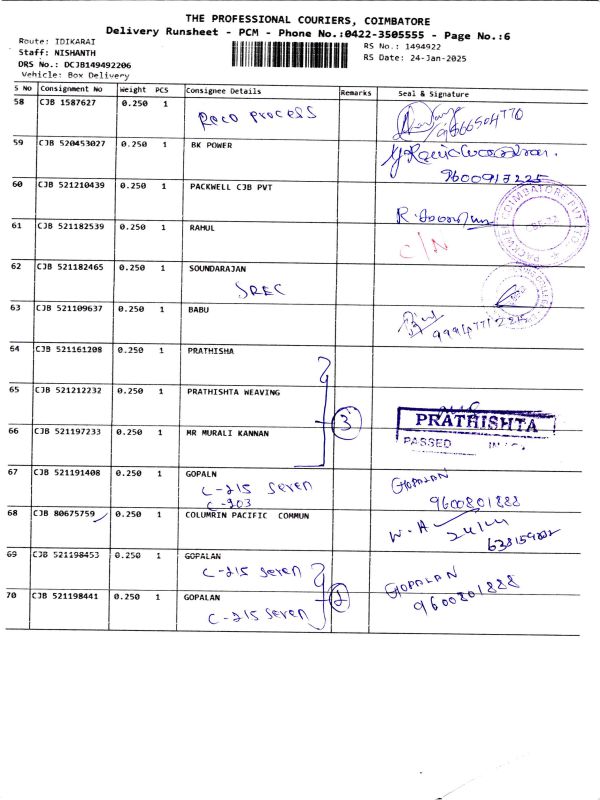 THE PROFESSIONAL COURIERS, COIMBATORE
Delivery Runsheet - PCM - Phone No.:0422-3505555 - Page No.:6
Route: IDIKARAI
RS No.: 1494922
Staff: NISHANTH
RS Date: 24-Jan-2025
DRS No.: DCJB149492206
Vehicle: Box Delivery
S No Consignment No Weight PCS Consignee Details Remarks Seal & Signature
58 CJB 1587627 0.250 1 Raco process
59 CJB 520453027 0.250 1 BK POWER
9600913225
60 CJB 521210439 0.250 1 PACKWELL CJB PVT
61 CJB 521182539 0.250 1 RAHUL C/N
62 CJB 521182465 0.250 1 SOUNDARAJAN
SREC
63 CJB 521109637 0.250 1 BABU
64 CJB 521161208 0.250 1 PRATHISHA
65 CJB 521212232 0.250 1 PRATHISHTA WEAVING
3 PRATHISHTA
66 CJB 521197233 0.250 1 MR MURALI KANNAN PASSED
67 CJB 521191408 0.250 1 GOPALN GOPALAN
C-215 seven 9600801888
C-203
68 CJB 80675759 0.250 1 COLUMRIN PACIFIC COMMUN
69 CJB 521198453 0.250 1 GOPALAN
C-215 seven GOPALAN
70 CJB 521198441 0.250 1 GOPALAN 2 9600801888
C-215 Seven